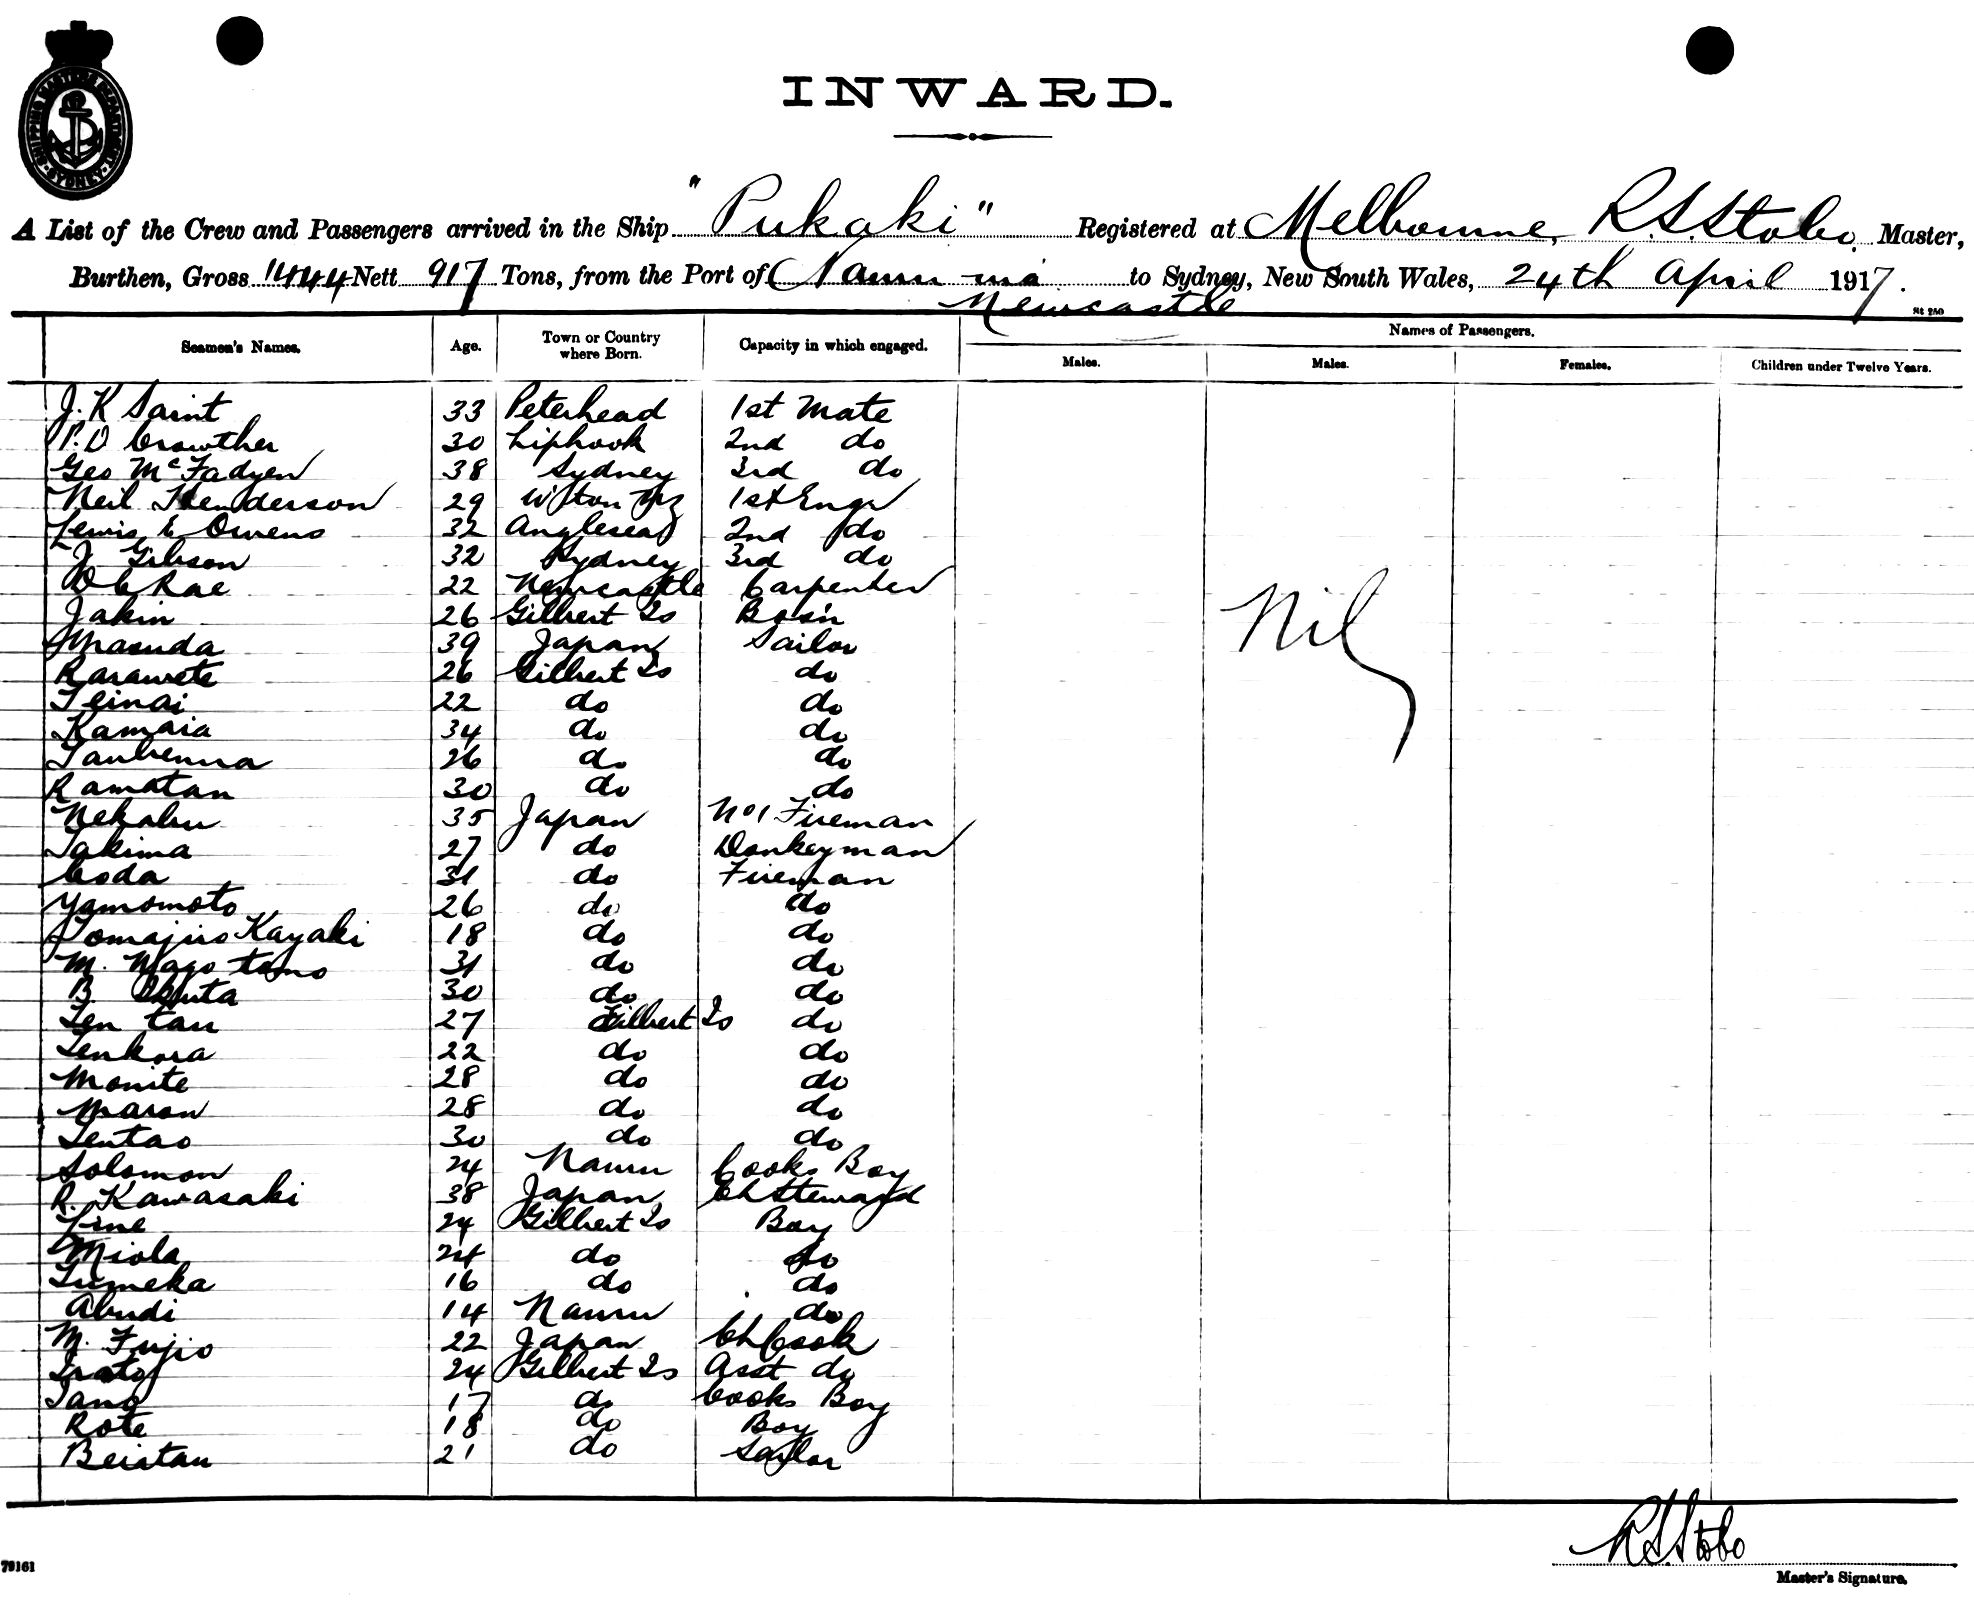 SHIPPING MASTERS DEPARTMENT SYDNEY
INWARD.
A List of the Crew and Passengers arrived in the Ship "Pukaki" Registered at Melbourne, R.S. Stobo, Master,
Burthen, Gross 1444 Nett 917 Tons, from the Port of Nauru via to Sydney, New South Wales, 24th April 1917.
Newcastle
St 250
Seamen's Names. Age. Town or Country where Born. Capacity in which engaged. Names of Passengers.
Males. Males. Females. Children under Twelve Years.
J. K Saint 33 Peterhead 1st Mate
P. D Crowther 30 Liphook 2nd do
Geo McFadyen 38 Sydney 3rd do
Neil Henderson 29 W'ton NZ 1st Engr
Lewis E Owens 32 Anglesea 2nd do
J Gibson 32 Sydney 3rd do
D C Rae 22 Newcastle Carpenter
Jakin 26 Gilbert Is Bos'n
Masuda 39 Japan Sailor
Rarawete 26 Gilbert Is do
Teinai 22 do do
Kamaia 34 do do
26 do do
Ramatan 30 do do
Nekabu 35 Japan No1 Fireman
Takima 27 do Donkeyman
Coda 31 do Fireman
Yamomoto 26 do do
Tomajiro Kayaki 18 do do
M. Magotomo 31 do do
B. Ikuta 30 do do
Ten tau 27 Gilbert Is do
Tenkora 22 do do
Monite 28 do do
Maron 28 do do
Tentao 30 do do
Solomon 24 Nauru Cooks Boy
R. Kawasaki 38 Japan Ch Steward
Tine 24 Gilbert Is Boy
Miola 24 do do
Tumeka 16 do do
Abudi 14 Nauru do
M. Fujio 22 Japan Ch Cook
24 Gilbert Is Asst do
Tano 17 do Cooks Boy
Rote 18 do Boy
Beiatau 21 do Sailor
Nil
R.S. Stobo
Master's Signature.
79161